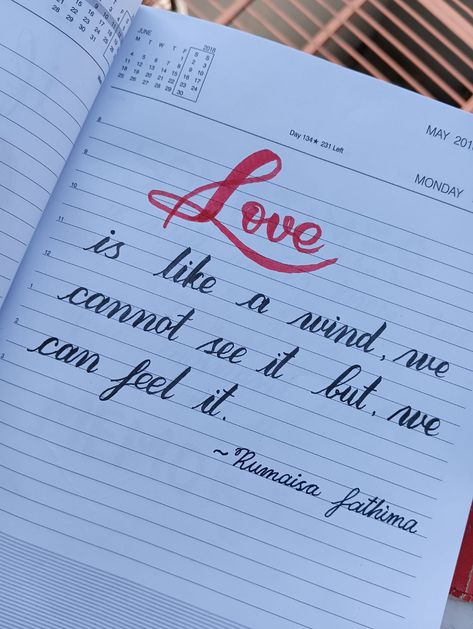 JUNE 2018
M T W T F S S
1 2 3
4 5 6 7 8 9 10
11 12 13 14 15 16 17
18 19 20 21 22 23 24
25 26 27 28 29 30
MAY 2018
Day 134★ 231 Left
MONDAY
8
9
Love
10
11
is like a wind, we
12
cannot see it but, we
1
2
can feel it.
3
~Rumaisa fathima